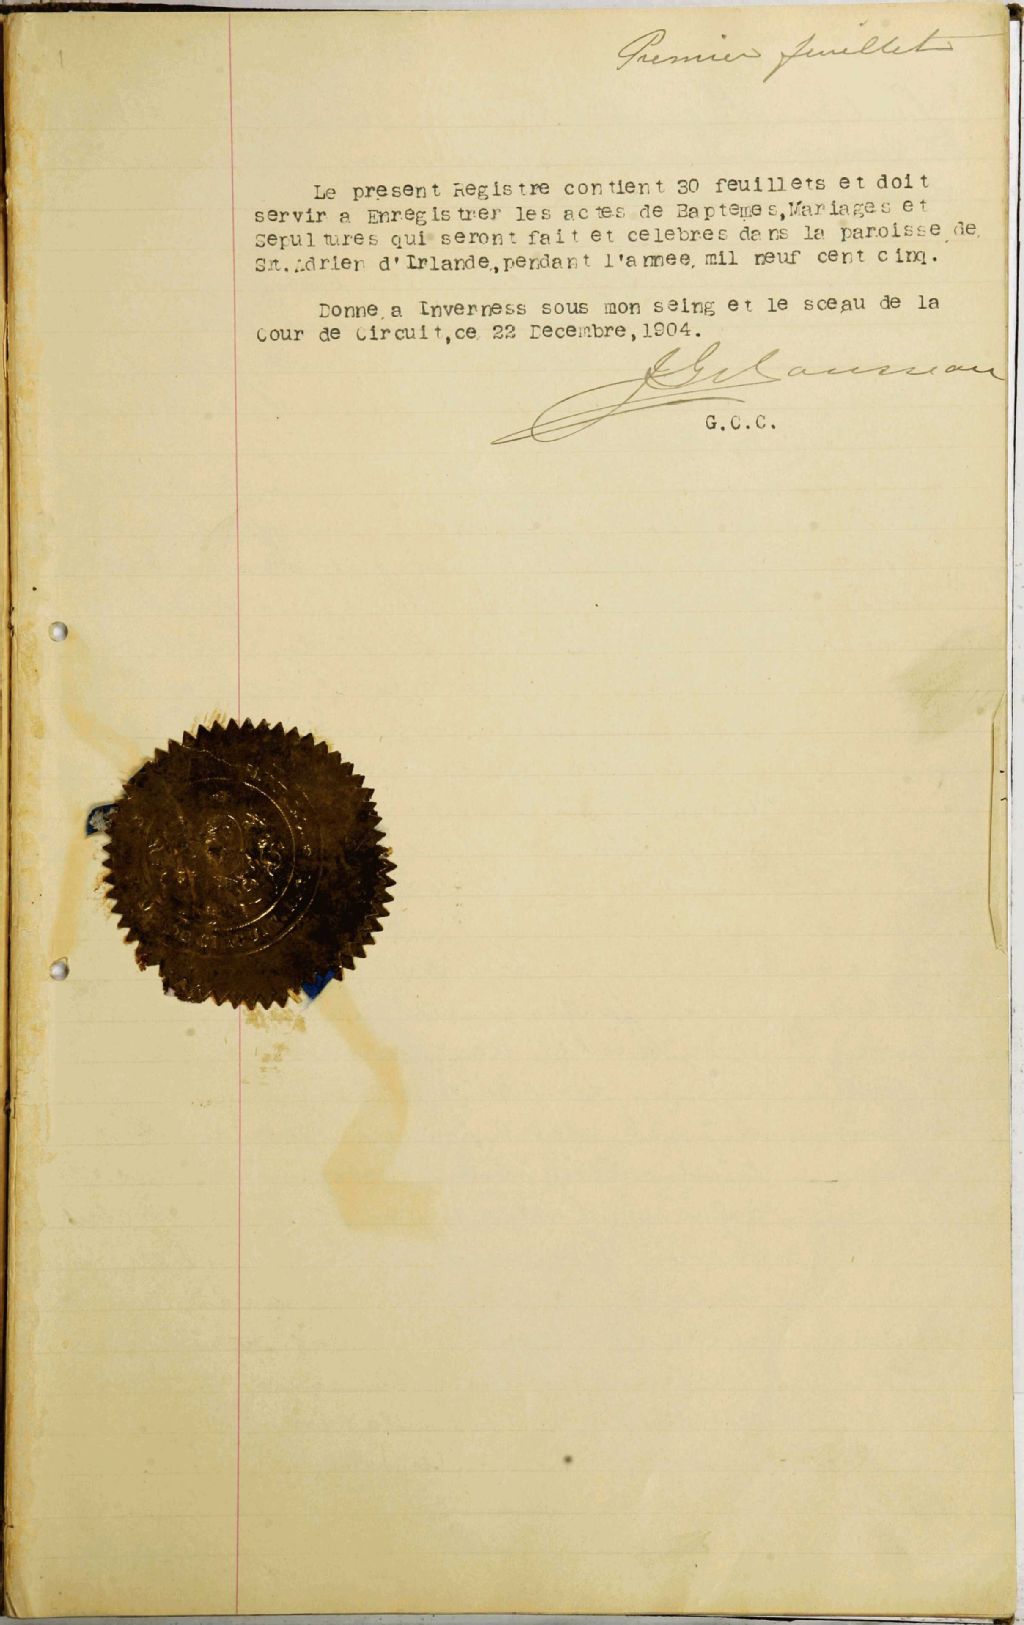 Premier feuillet
Le present Registre contient 30 feuillets et doit
servir a Enregistrer les actes de Baptemes,Mariages et
Sepultures qui seront fait et celebres dans la paroisse de
St.Adrien d'Irlande,pendant l'annee, mil neuf cent cinq.
Donne a Inverness sous mon seing et le sceau de la
Cour de Circuit,ce 22 Decembre,1904.
Rousseau
G.C.C.